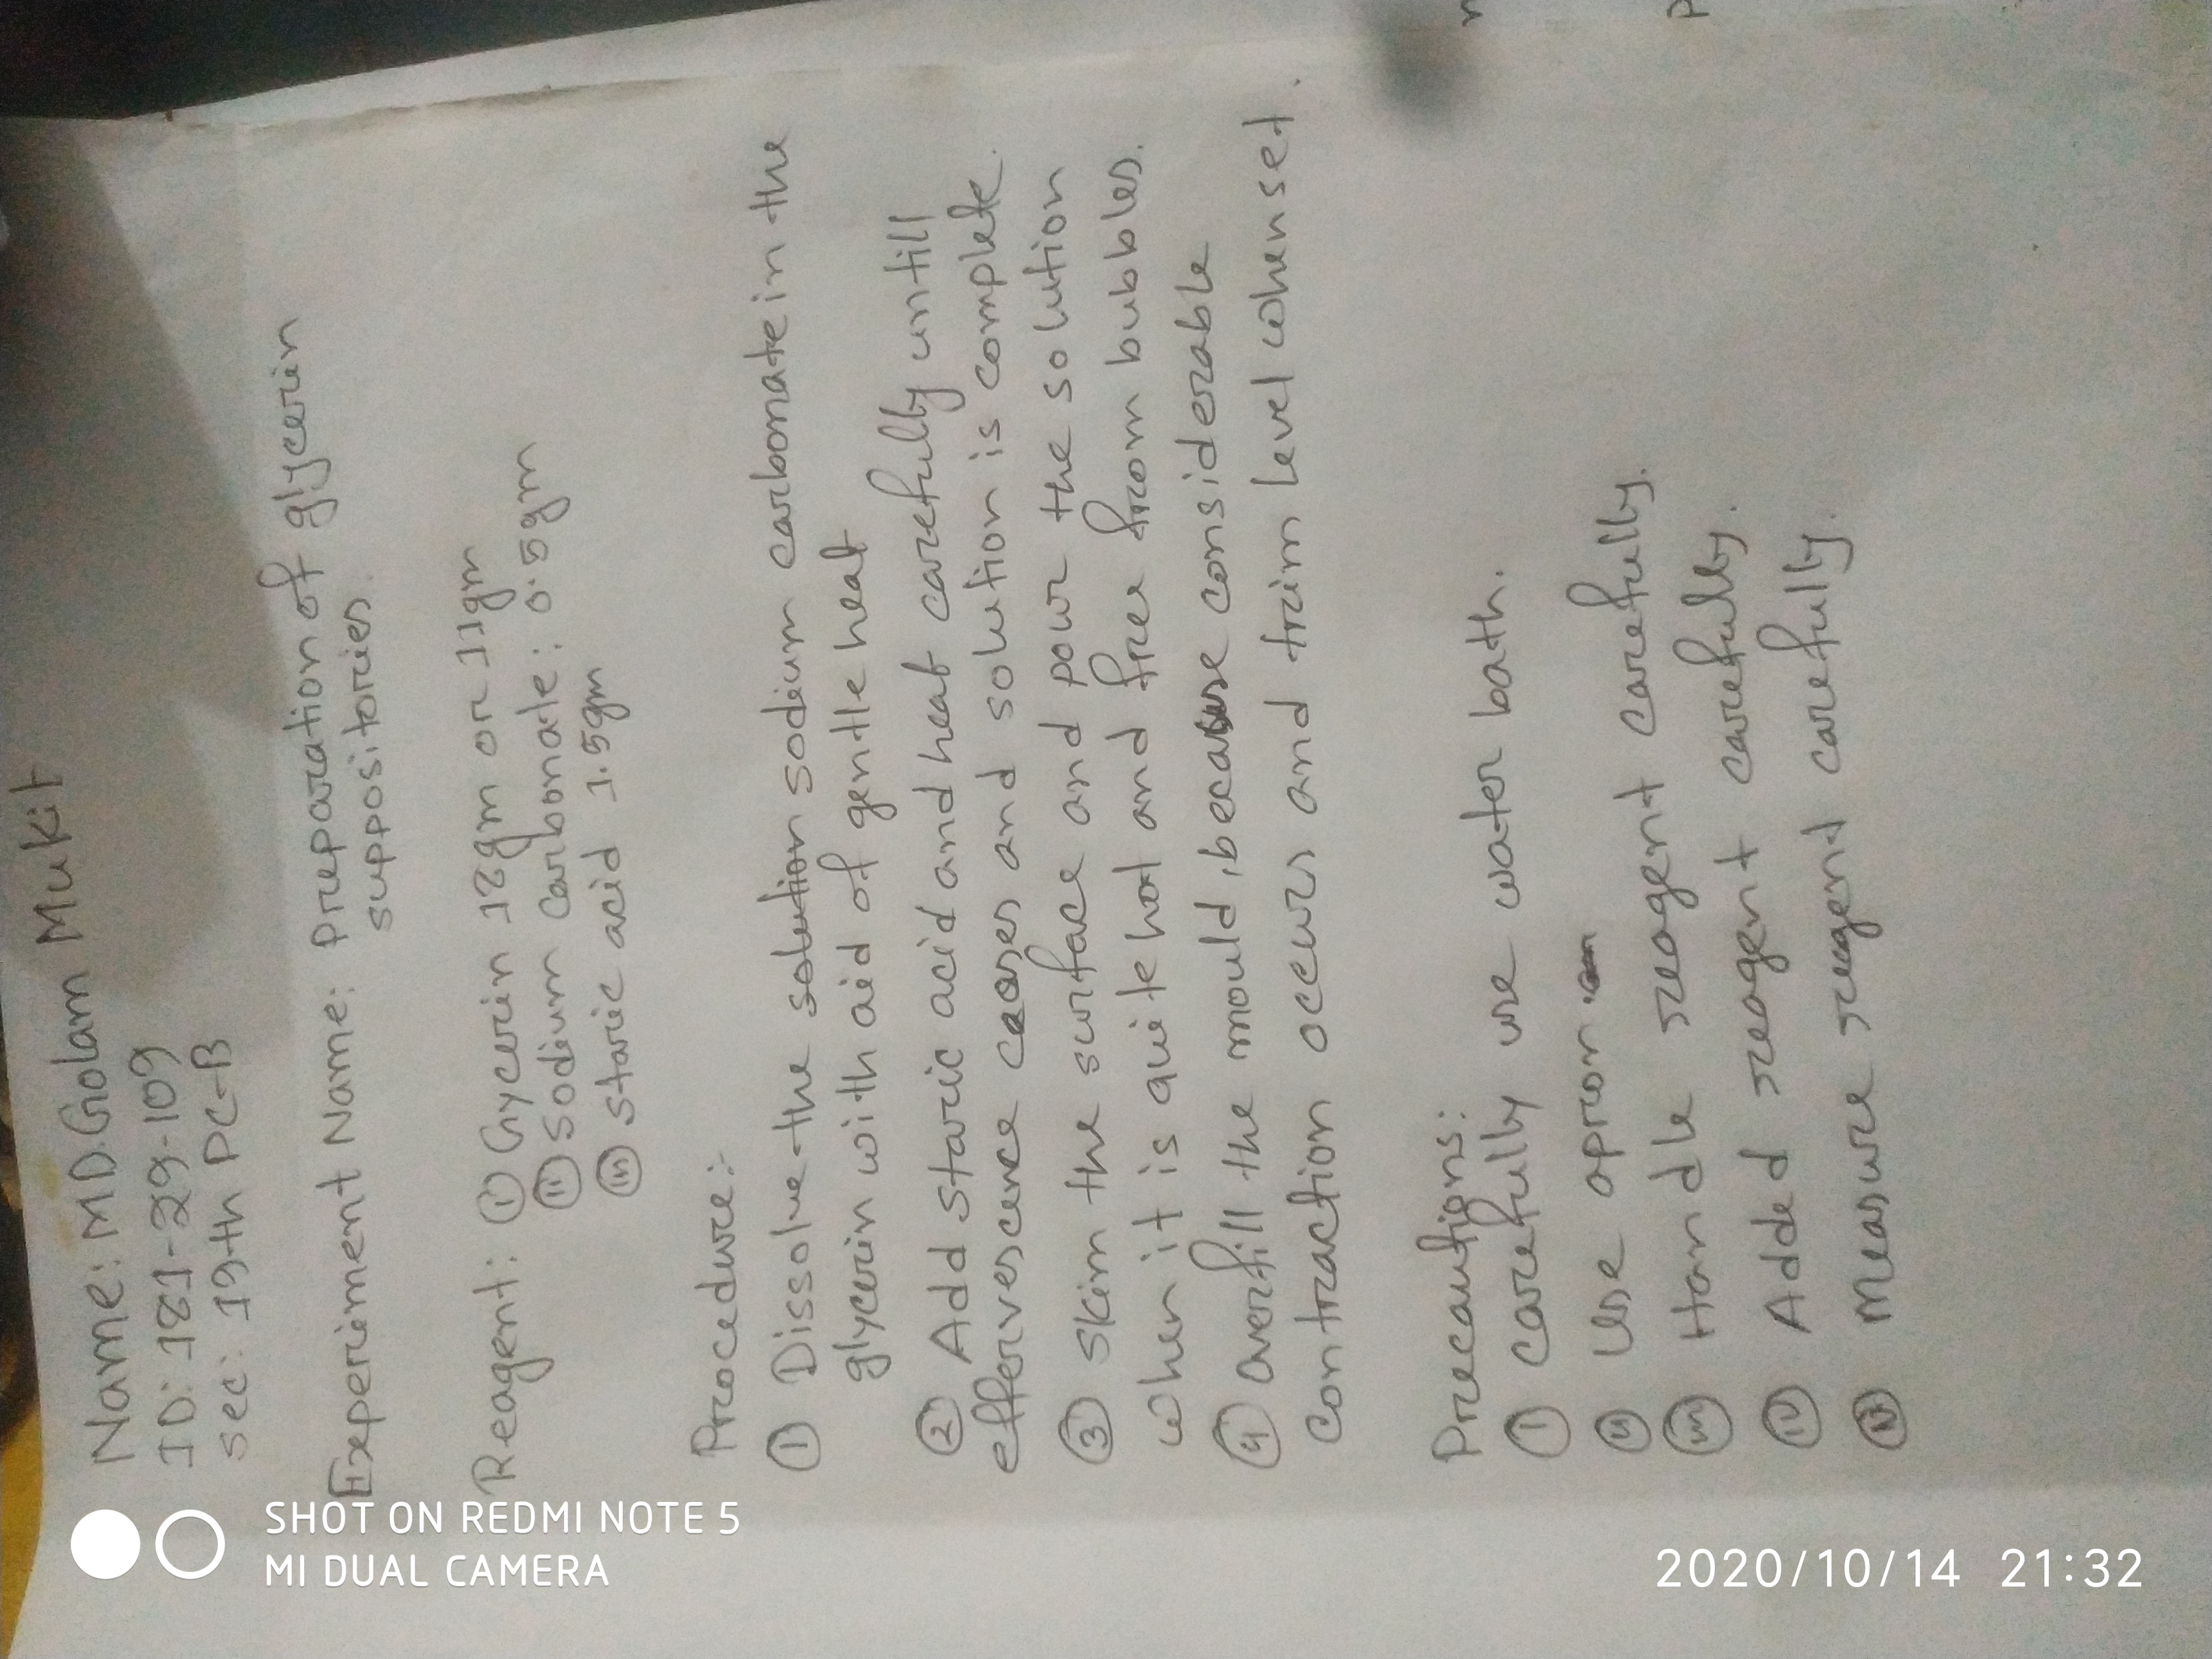 Name: MD. Golam Mukit
ID: 181-29-109
sec: 19th PC-B
Experiment Name: Preparation of glycerin
suppositories.
Reagent: (i) Glycerin 18gm or 11gm
(ii) sodium carbonate: 0.5gm
(iii) staric acid 1.5gm
Procedure:-
(1) Dissolve the solution sodium carbonate in the
glycerin with aid of gentle heat
(2) Add staric acid and heat carefully untill
effervescence ceases and solution is complete.
(3) skim the surface and pour the solution
when it is quite hot and free from bubbles.
(4) overfill the mould, because considerable
contraction occurs and trim level when set.
Precautions:
(i) carefully use water bath.
(ii) Use apron.
(iii) Handle reagent carefully.
(iv) Added reagent carefully.
(v) Measure reagent carefully.
SHOT ON REDMI NOTE 5
MI DUAL CAMERA
2020/10/14 21:32